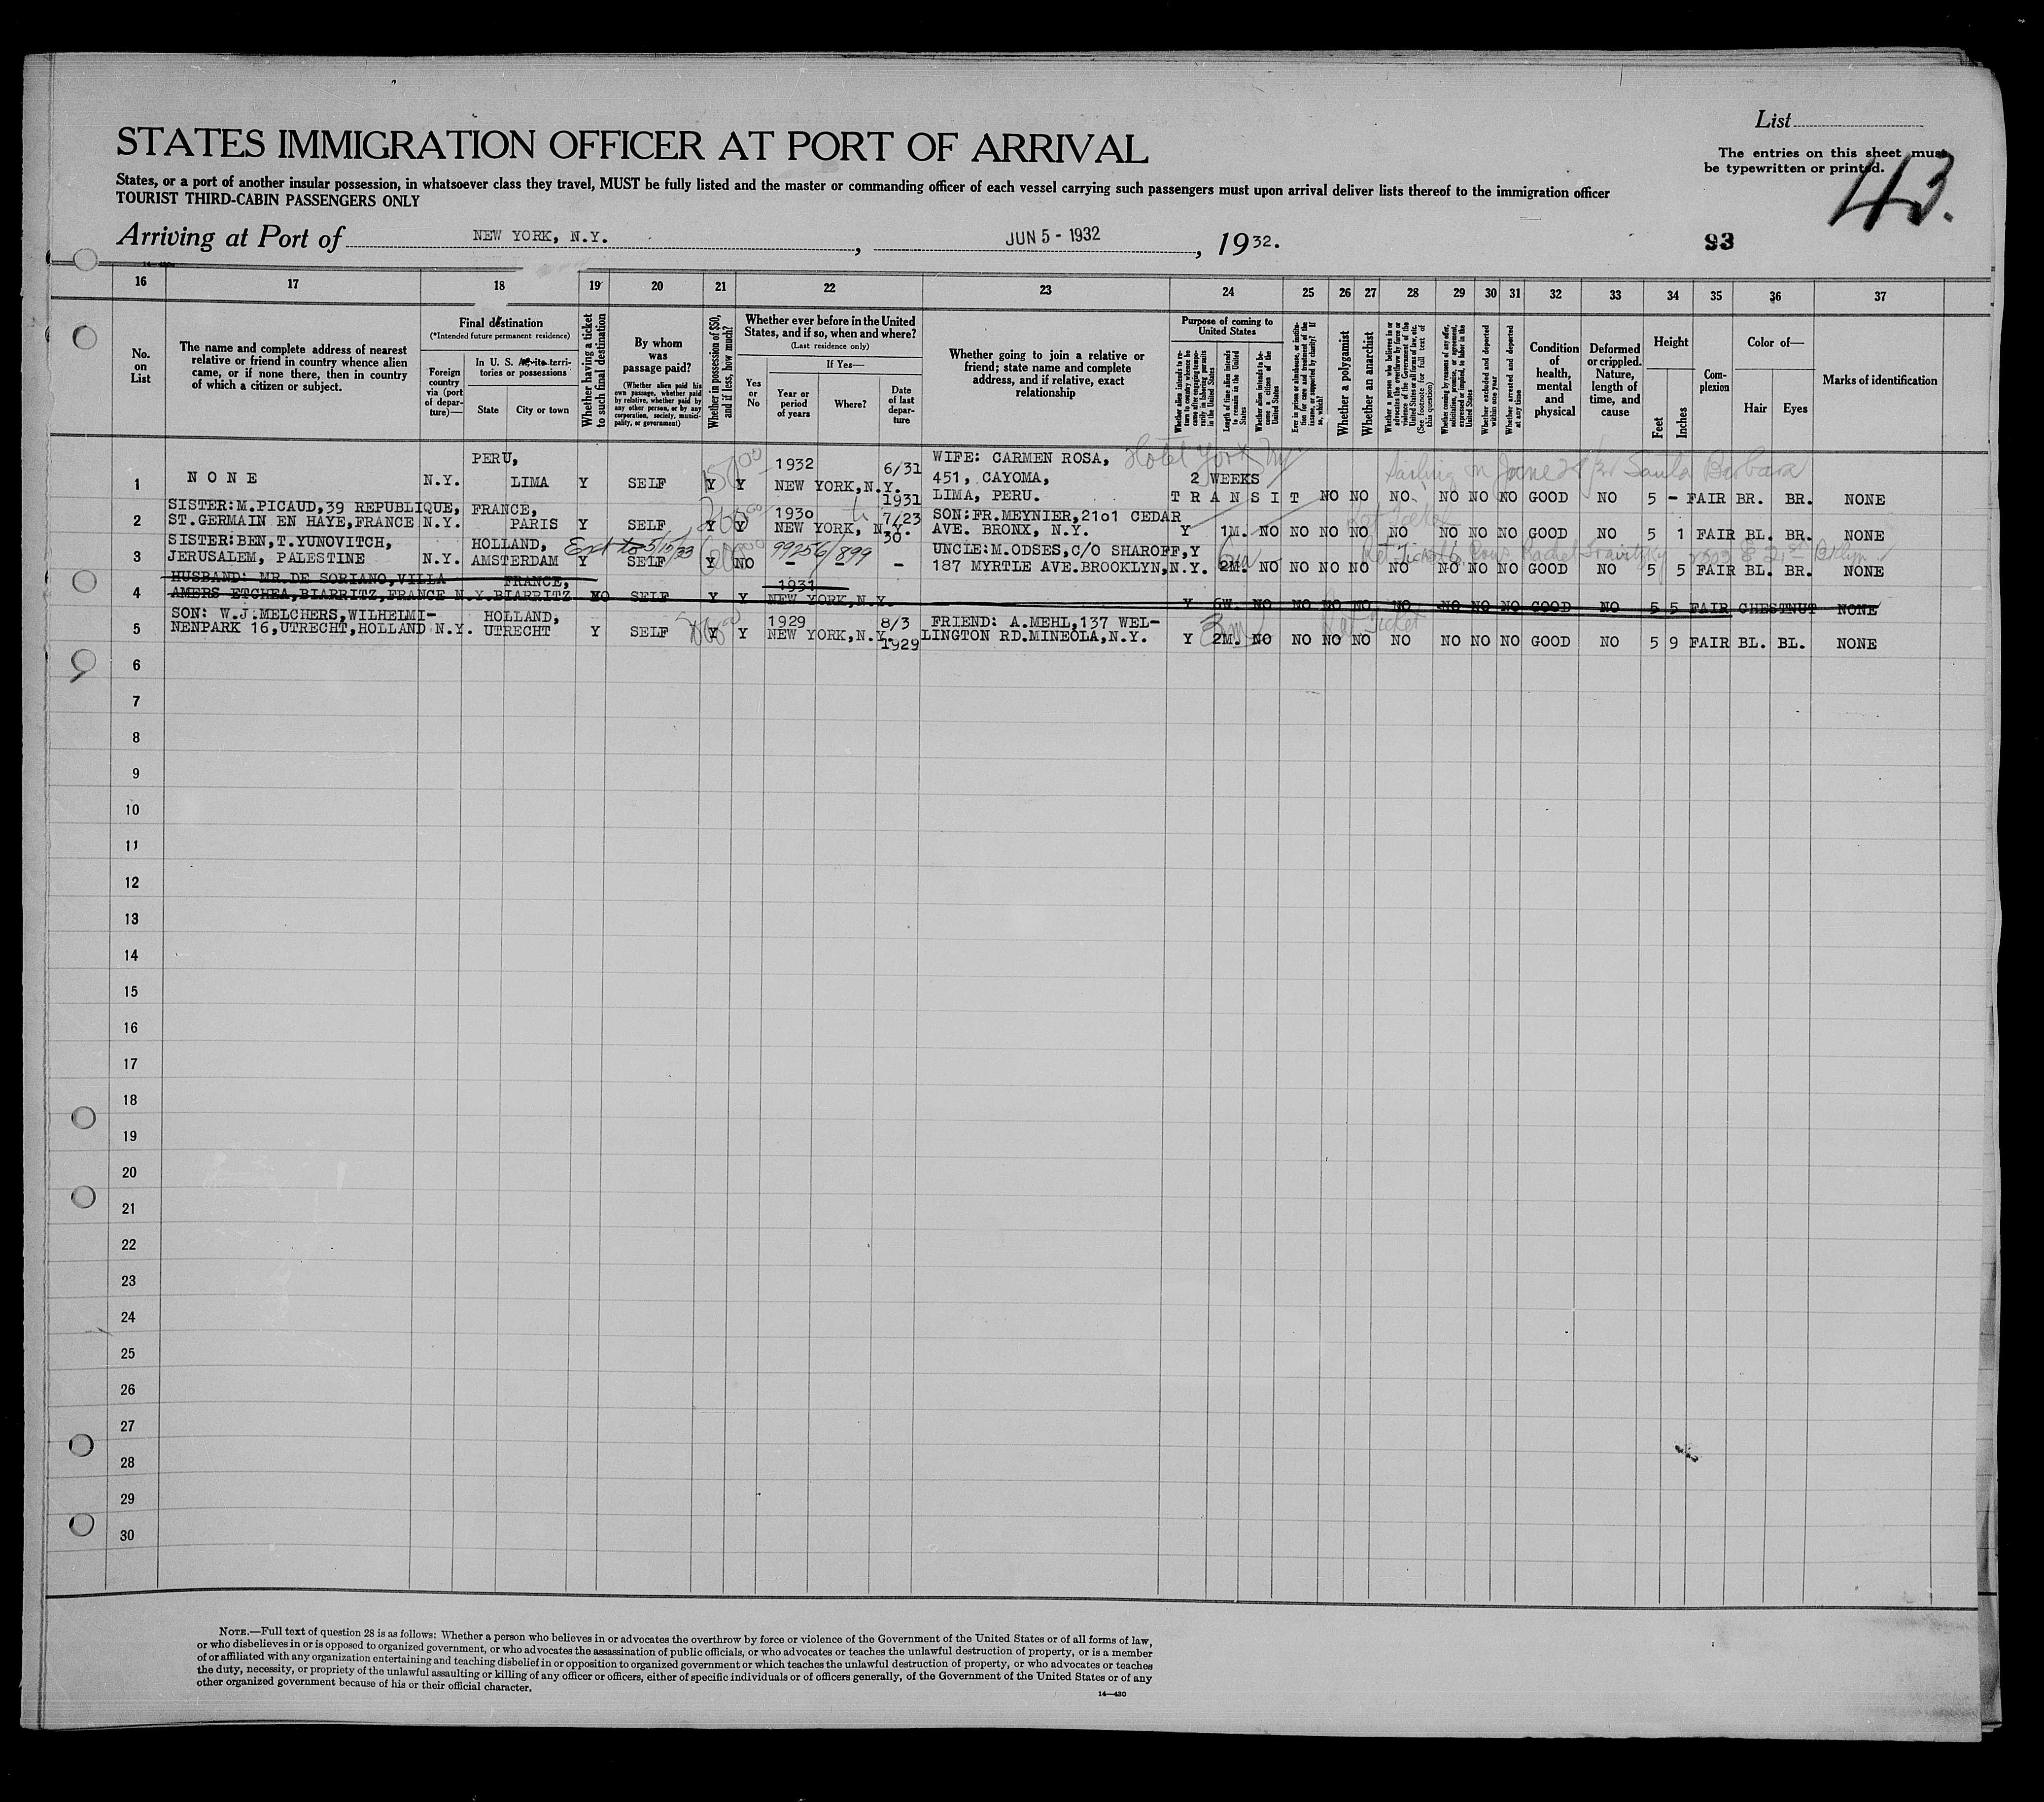 List
STATES IMMIGRATION OFFICER AT PORT OF ARRIVAL
The entries on this sheet must
be typewritten or printed.
43.
States, or a port of another insular possession, in whatsoever class they travel, MUST be fully listed and the master or commanding officer of each vessel carrying such passengers must upon arrival deliver lists thereof to the immigration officer
TOURIST THIRD-CABIN PASSENGERS ONLY
Arriving at Port of NEW YORK, N.Y. , JUN 5 - 1932 , 19 32.
93
16 17 18 19 20 21 22 23 24 25 26 27 28 29 30 31 32 33 34 35 36 37
No. on List
The name and complete address of nearest relative or friend in country whence alien came, or if none there, then in country of which a citizen or subject.
Final destination
(*Intended future permanent residence)
Foreign country via (port of departure)—
In U. S. territories or possessions
State
City or town
Whether having a ticket to such final destination
By whom was passage paid?
(Whether alien paid his own passage, whether paid by relative, whether paid by any other person, or by any corporation, society, municipality, or government)
Whether in possession of $50, and if less, how much?
Whether ever before in the United States, and if so, when and where?
(Last residence only)
Yes or No
If Yes—
Year or period of years
Where?
Date of last departure
Whether going to join a relative or friend; state name and complete address, and if relative, exact relationship
Purpose of coming to United States
Whether alien intends to return to country whence he came after engaging temporarily in laboring pursuits in the United States
Length of time alien intends to remain in the United States
Whether alien intends to become a citizen of the United States
Ever in prison or almshouse, or institution for care and treatment of the insane, or supported by charity? If so, which?
Whether a polygamist
Whether an anarchist
Whether a person who believes in or advocates the overthrow by force or violence of the Government of the United States or of all forms of law, etc. (See footnote for full text of this question)
Whether coming by reason of any offer, solicitation, promise, or agreement, expressed or implied, to labor in the United States
Whether excluded and deported within one year
Whether arrested and deported at any time
Condition of health, mental and physical
Deformed or crippled. Nature, length of time, and cause
Height
Feet
Inches
Complexion
Color of—
Hair
Eyes
Marks of identification
1 NONE N.Y. PERU, LIMA Y SELF Y Y 1932 NEW YORK,N.Y. 6/31 1931 WIFE: CARMEN ROSA, 451, CAYOMA, LIMA, PERU. 2 WEEKS TRANSIT NO NO NO NO NO NO GOOD NO 5 - FAIR BR. BR. NONE
Hotel York Ny
Sailing on June Santa Barbara
2 SISTER:M.PICAUD,39 REPUBLIQUE, ST.GERMAIN EN HAYE,FRANCE N.Y. FRANCE, PARIS Y SELF Y Y 1930 NEW YORK, N.Y. 7/23 30 SON:FR.MEYNIER,21o1 CEDAR AVE. BRONX, N.Y. Y 1M. NO NO NO NO NO NO NO NO GOOD NO 5 1 FAIR BL. BR. NONE
3 SISTER:BEN,T.YUNOVITCH, JERUSALEM, PALESTINE N.Y. HOLLAND, AMSTERDAM Y SELF Y NO - - - UNCLE:M.ODSES,C/O SHAROFF, 187 MYRTLE AVE.BROOKLYN,N.Y. Y 2M. NO NO NO NO NO NO NO NO GOOD NO 5 5 FAIR BL. BR. NONE
Ext to 5/15/33
99256/899
4 HUSBAND: MR.DE SORIANO,VILLA AMERS ETCHEA,BIARRITZ,FRANCE N.Y. FRANCE, BIARRITZ NO SELF Y Y 1931 NEW YORK,N.Y. Y 6W. NO NO NO NO NO NO NO NO GOOD NO 5 5 FAIR CHESTNUT NONE
5 SON: W.J.MELCHERS,WILHELMI- NENPARK 16,UTRECHT,HOLLAND N.Y. HOLLAND, UTRECHT Y SELF Y Y 1929 NEW YORK,N.Y. 8/3 1929 FRIEND: A.MEHL,137 WEL- LINGTON RD.MINEOLA,N.Y. Y 2M. NO NO NO NO NO NO NO NO GOOD NO 5 9 FAIR BL. BL. NONE
Ret Ticket
6
7
8
9
10
11
12
13
14
15
16
17
18
19
20
21
22
23
24
25
26
27
28
29
30
NOTE.—Full text of question 28 is as follows: Whether a person who believes in or advocates the overthrow by force or violence of the Government of the United States or of all forms of law,
or who disbelieves in or is opposed to organized government, or who advocates the assassination of public officials, or who advocates or teaches the unlawful destruction of property, or is a member
of or affiliated with any organization entertaining and teaching disbelief in or opposition to organized government or which teaches the unlawful destruction of property, or who advocates or teaches
the duty, necessity, or propriety of the unlawful assaulting or killing of any officer or officers, either of specific individuals or of officers generally, of the Government of the United States or of any
other organized government because of his or their official character.
14—430